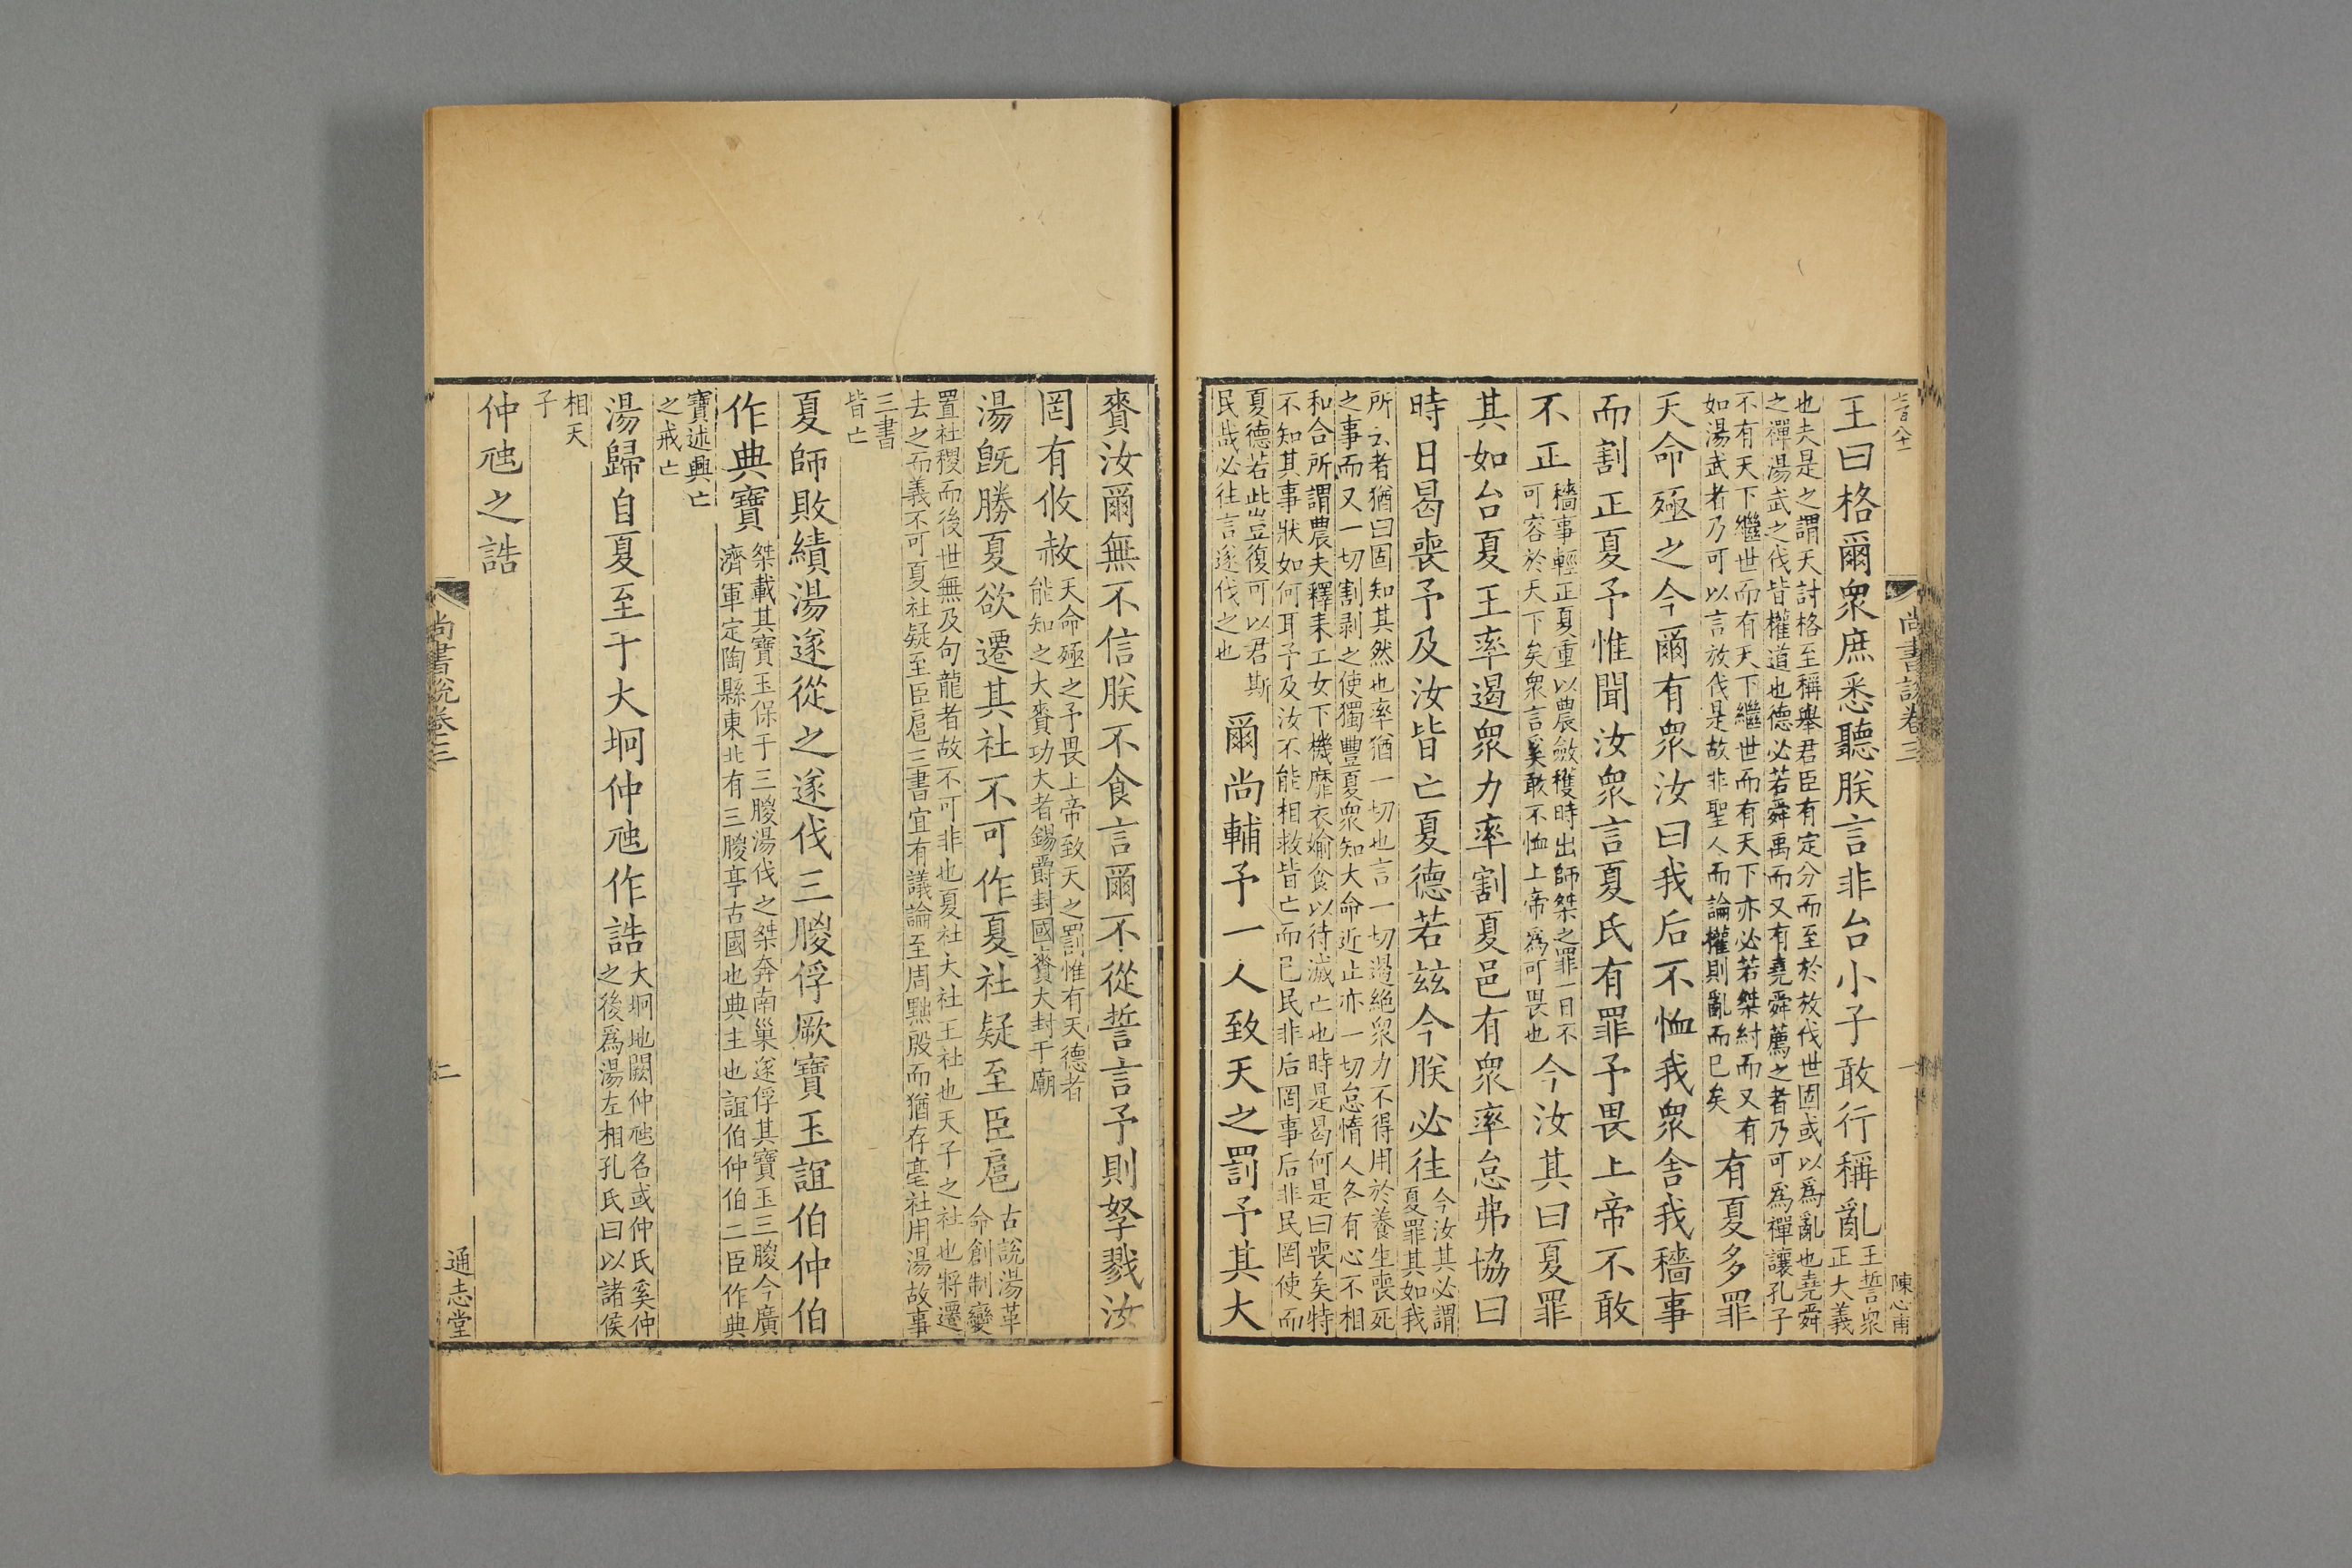 七百八十
尚書說卷三
一
陳心甫
王曰格爾衆庶悉聽朕言非台小子敢行稱亂王誓衆正大義
也夫是之謂天討格至稱舉君臣有定分而至於放伐世固或以爲亂也堯舜
之禪湯武之伐皆權道也德必若舜禹而又有堯舜薦之者乃可爲禪讓孔子
不有天下繼世而有天下繼世而有天下亦必若桀紂而又有
如湯武者乃可以言放伐是故非聖人而論權則亂而已矣有夏多罪
天命殛之今爾有衆汝曰我后不恤我衆舍我穡事
而割正夏予惟聞汝衆言夏氏有罪予畏上帝不敢
不正穡事輕正夏重以農斂穫時出師桀之罪一日不
可容於天下矣衆言奚敢不恤上帝爲可畏也今汝其曰夏罪
其如台夏王率遏衆力率割夏邑有衆率怠弗協曰
時日曷喪予及汝皆亡夏德若茲今朕必往今汝其必謂
夏罪其如我
所云者猶曰固知其然也率猶一切也言一切遏絕衆力不得用於養生喪死
之事而又一切割剥之使獨豐夏衆知大命近止亦一切怠惰人各有心不相
和合所謂農夫釋耒工女下機靡衣媮食以待滅亡也時是曷何是曰喪矣特
不知其事狀如何耳予及汝不能相救皆亡而已民非后罔事后非民罔使而
夏德若此豈復可以君斯
民哉必往言遂伐之也爾尚輔予一人致天之罰予其大
賚汝爾無不信朕不食言爾不從誓言予則孥戮汝
罔有攸赦天命殛之予畏上帝致天之罰惟有天德者
能知之大賚功大者錫爵封國賚大封于廟
湯旣勝夏欲遷其社不可作夏社疑至臣扈古說湯革
命創制變
置社稷而後世無及句龍者故不可非也夏社大社王社也天子之社也將遷
去之而義不可夏社疑至臣扈三書宜有議論至周黜殷而猶存亳社用湯故事
三書
皆亡
夏師敗績湯遂從之遂伐三朡俘厥寶玉誼伯仲伯
作典寶桀載其寶玉保于三朡湯伐之桀奔南巢遂俘其寶玉三朡今廣
濟軍定陶縣東北有三朡亭古國也典主也誼伯仲伯二臣作典
寶述興亡
之戒亡
湯歸自夏至于大坰仲虺作誥大坰地闕仲虺名或仲氏奚仲
之後爲湯左相孔氏曰以諸侯
相天
子
仲虺之誥
尚書說卷三
二
通志堂